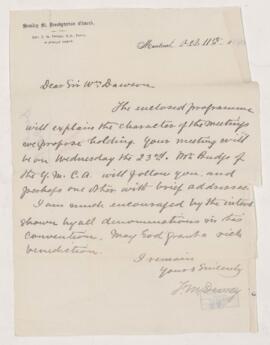 Stanley St. Presbyterian Church.
Montreal Oct. 11th
Dear Sir Wm Dawson
The enclosed programme
will explain the character of the meetings
we propose holding. Your meeting will
be on Wednesday the 23rd. Mr. Budge of
the Y.M.C.A. will follow you, and
perhaps one other with brief addresses.
I am much encouraged by the interest
shown by all denominations in this
convention. May God grant a rich
benediction.
I remain
Yours Sincerely
F M Dewey